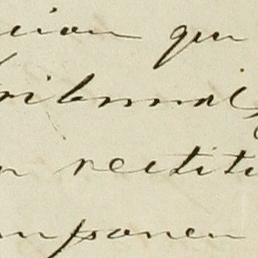 cion que
ribunal
n rectitu
mponen